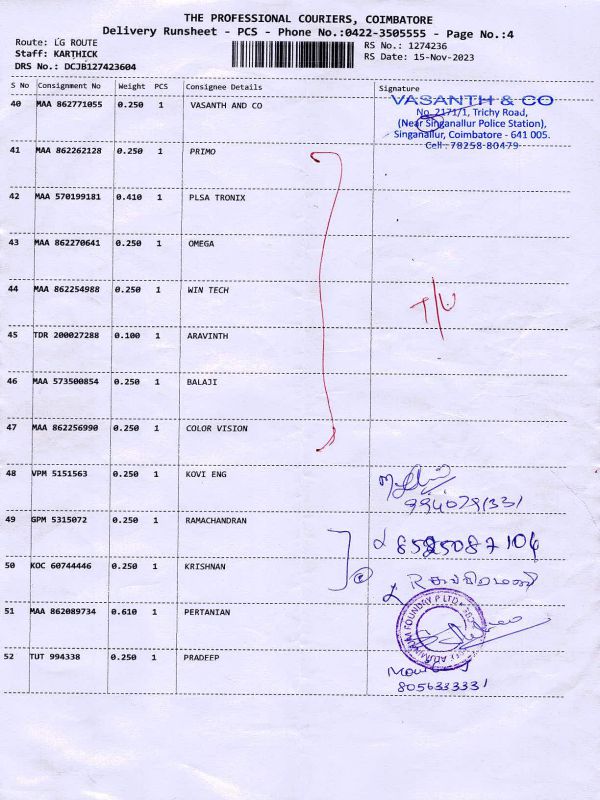 THE PROFESSIONAL COURIERS, COIMBATORE
Delivery Runsheet - PCS - Phone No.:0422-3505555 - Page No.:4
Route: LG ROUTE
Staff: KARTHICK
DRS No.: DCJB127423604
RS No.: 1274236
RS Date: 15-Nov-2023
S No Consignment No Weight PCS Consignee Details Signature
40 MAA 862771055 0.250 1 VASANTH AND CO
VASANTH & CO
No. 2171/1, Trichy Road,
(Near Singanallur Police Station),
Singanallur, Coimbatore - 641 005.
Cell : 78258-80479
41 MAA 862262128 0.250 1 PRIMO
42 MAA 570199181 0.410 1 PLSA TRONIX
43 MAA 862270641 0.250 1 OMEGA
44 MAA 862254988 0.250 1 WIN TECH
T/U
45 TDR 200027288 0.100 1 ARAVINTH
46 MAA 573500854 0.250 1 BALAJI
47 MAA 862256990 0.250 1 COLOR VISION
48 VPM 5151563 0.250 1 KOVI ENG
9940791331
49 GPM 5315072 0.250 1 RAMACHANDRAN
8525087104
50 KOC 60744446 0.250 1 KRISHNAN
51 MAA 862089734 0.610 1 PERTANIAN
FOUNDRY P LTD
52 TUT 994338 0.250 1 PRADEEP
8056333331